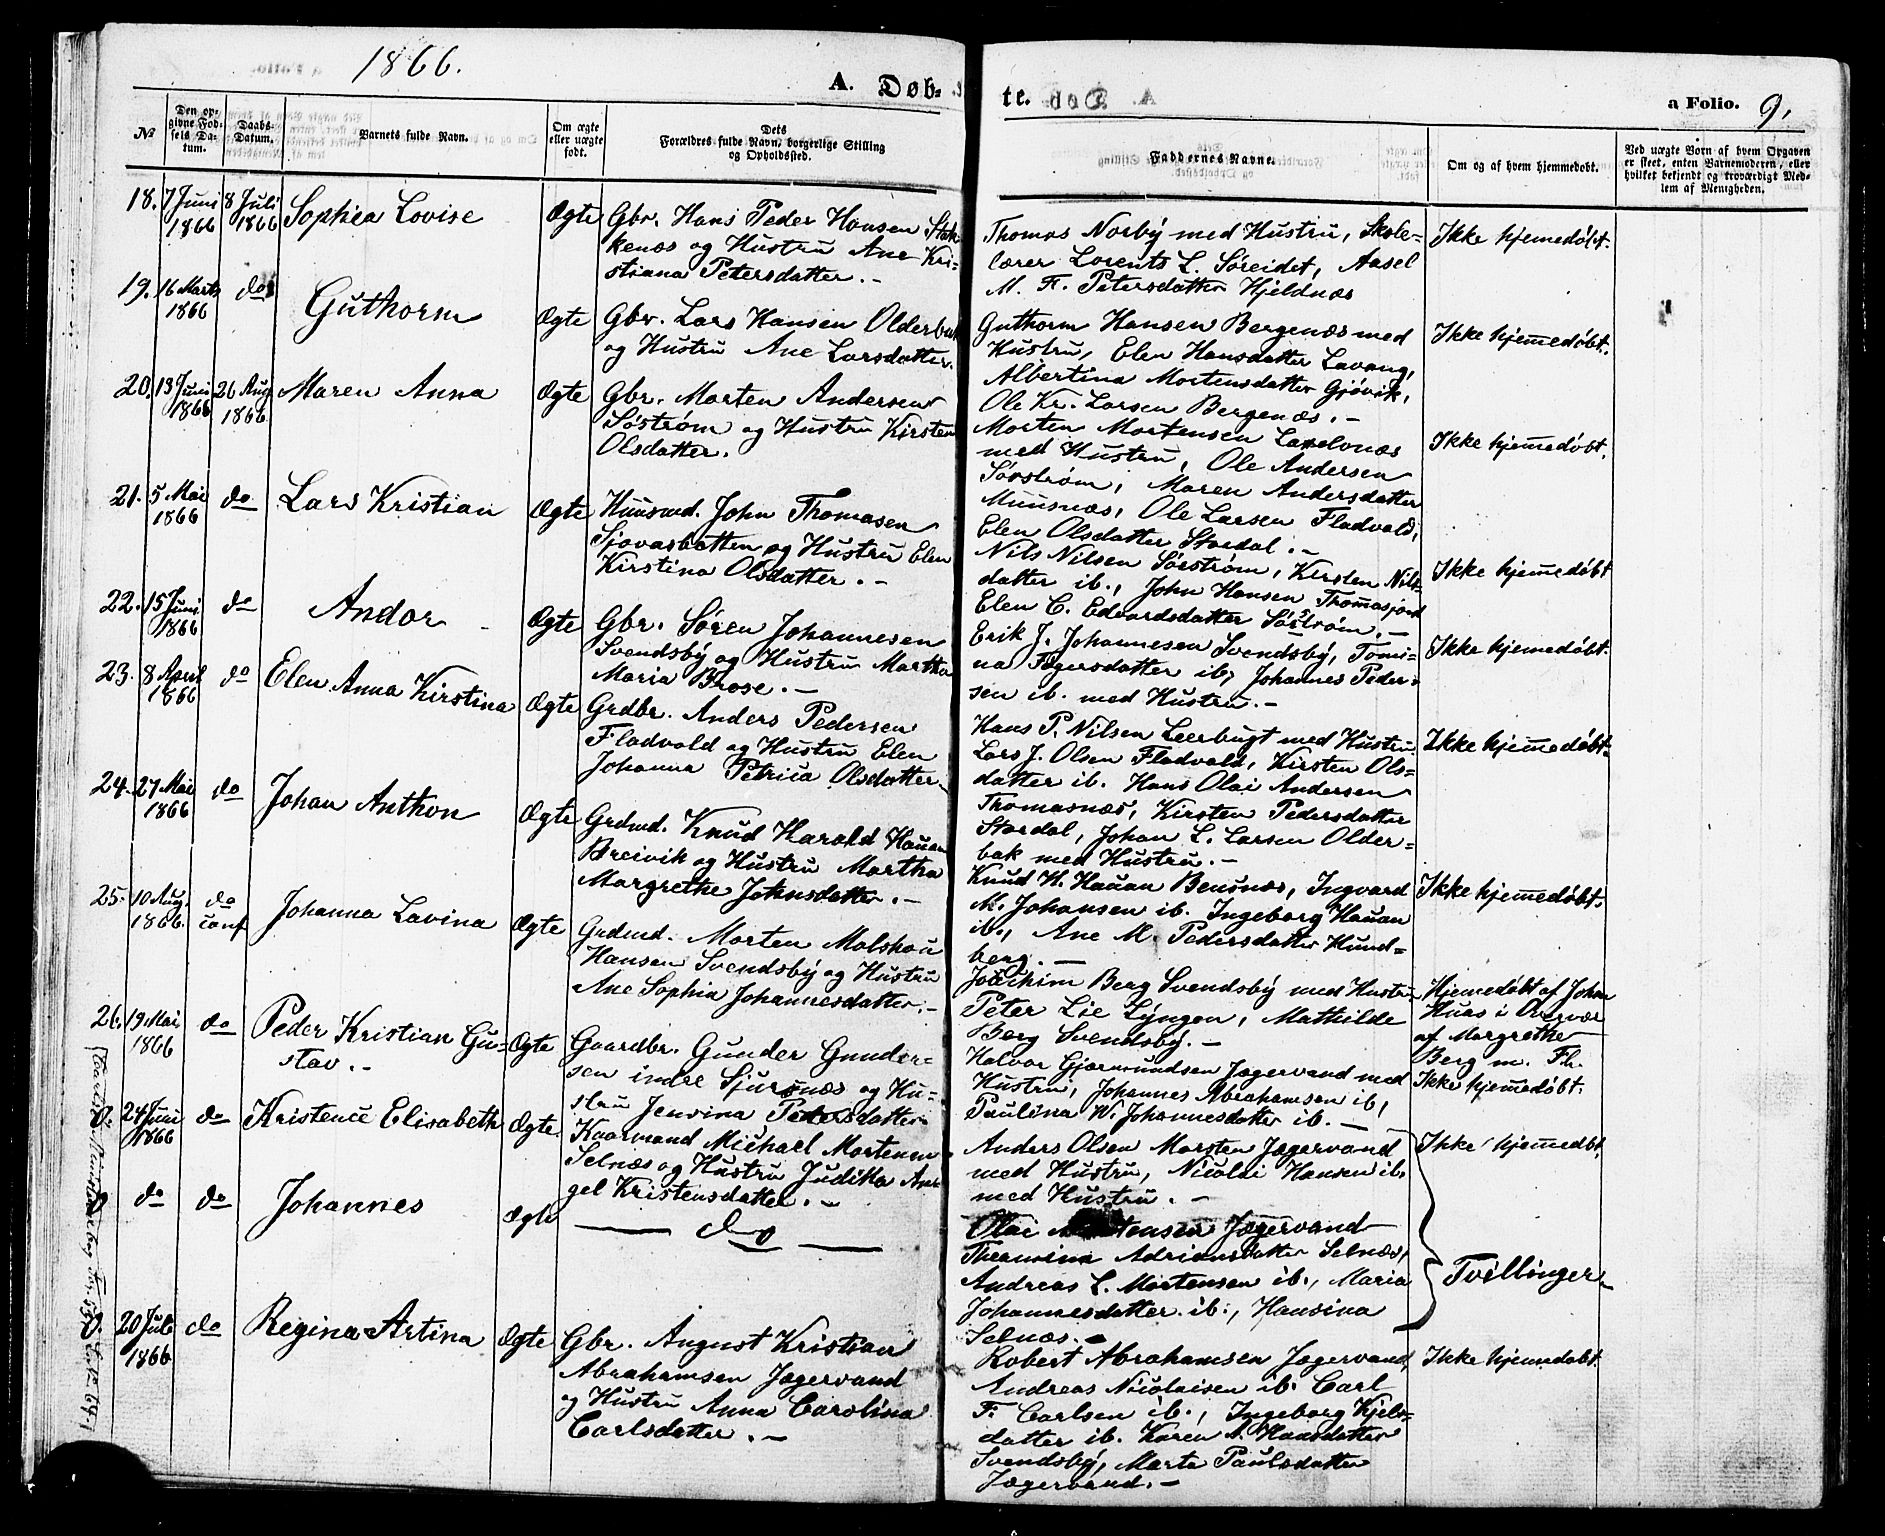 1866.
A. Døb-
te.
a Folio. 9.
No
Den op-
givne Fød-
sels Da-
tum.
Daabs-
Datum.
Barnets fulde Navn.
Om ægte
eller uægte
født.
Dets
Forældres fulde Navn, borgerlige Stilling
og Opholdssted.
Faddernes Navne.
Om og af hvem hjemmedøbt.
Ved uægte Børn af hvem Opgaven
er skeet, enten Barnemoderen, eller
hvilket bekjendt og troværdigt Med-
lem af Menigheden.
18. 7 Juni
1866
8 Juli
1866
Sophia Lovise
Ægte
Gbr. Hans Peder Hansen Stak-
kenæs og Hustru Ane Kri-
stiana Petersdatter. -
Thomas Norby med Hustru, Skole-
lærer Lorents L. Søreidet, Aasel
M. F. Petersdatter Hjeldnæs
Ikke hjemedøbt.
19. 16 Marts
1866
do
Guthorm
Ægte
Gbr. Lars Hansen Olderbak
og Hustru Ane Larsdatter.
Guthorm Hansen Bergenæs med
Hustru, Elen Hansdatter Lavang,
Albertina Mortensdatter Gjövik,
Ole Kr. Larsen Bergenæs. -
Ikke hjemedøbt.
20. 13 Juni
1866
26 Aug
1866
Maren Anna
Ægte
Gbr. Morten Andersen
Söström og Hustru Kirsten
Olsdatter.
Morten Mortensen Laxelvnæs
med Hustru, Ole Andersen
Sörström, Maren Andersdatter
Muusnæs, Ole Larsen Fladvold,
Elen Olsdatter Stordal. -
Ikke hjemedøbt.
21. 5 Mai
1866
do
Lars Kristian
Ægte
Huusmd. John Thomasen
Sjovasbotten og Hustru Elen
Kirstina Olsdatter. -
Nils Nilsen Sörström, Kirsten Nils-
datter ib., John Hansen Thomasjord
Elen C. Edvardsdatter Söström. -
Ikke hjemedøbt
22. 15 Juni
1866
do
Andor
Ægte
Gbr. Sören Johannesen
Svendsby og Hustru Martha
Maria Brose. -
Erik J. Johannesen Svendsby, Tomi-
na Fægersdatter ib, Johannes Peder-
sen ib. med Hustru. -
Ikke hjemedøbt.
23. 8 April
1866
do
Elen Anna Kirstina
Ægte
Grdbr. Anders Pedersen
Fladvold og Hustru Elen
Johanna Petrica Olsdatter
Hans P. Nilsen Leerbugt med Hustru
Lars J. Olsen Fladvold, Kirsten Ols-
datter ib. Hans Olai Andersen
Thomasnæs, Kirsten Pedersdatter
Stordal, Johan L. Larsen Older-
bak med Hustru. -
Ikke hjemedøbt.
24. 27 Mai
1866
do
Johan Anthon
Ægte
Grdmd. Knud Harald Hauan
Breivik og Hustru Martha
Margrethe Johnsdatter. -
Knud H. Hauan Bensnæs, Ingvard
M. Johansen ib. Ingeborg Hauan
ib., Ane M. Pedersdatter Hund-
berg. -
Ikke hjemedøbt.
25. 10 Aug.
1866.
do
conf
Johanna Lavina
Ægte
Grdmd. Morten Malskou
Hansen Svendsby og Hustru
Ane Sophia Johannesdatter. -
Joachim Berg Svendsby med Hustru
Peter Lie Lyngen, Mathilde
Berg Svendsby. -
Hjemedøbt af Johan
af Margrethe
Berg m. Fl.
26. 19. Mai
1866
do
Peder Kristian Gu-
stav. -
Ægte
Gaardbr. Gunder Gunder-
sen indre Sjursnæs og Hu-
stru Jensina Petersdatter
Halvor Gjermundsen Jægervand med
Hustru, Johannes Abrahamsen ib,
Paulina W. Johannesdatter ib. -
Ikke hjemedøbt.
24 Juni
1866
do
Kristence Elisabeth
Ægte
Kaarmand Michael Mortensen
Selnæs og Hustru Juditha An-
gel Kristensdatter. -
Anders Olsen Morsten Jægervand
med Hustru, Nicolai Hansen ib.
med Hustru. -
Ikke hjemmedbt.
do
do
Johannes
Ægte
— do —
Olai Jægervand
Adriansdatter Selnæs,
Andreas L. Mortensen ib., Maria
Johannesdatter ib., Hansina
Selnæs. -
Tvillinger
20 Juli
1866
do
Regina Artina
Ægte
Gbr. August Kristian
Abrahamsen Jægervand
og Hustru Anna Carolina
Carlsdatter. -
Robert Abrahamsen Jægervand,
Andreas Nicolaisen ib. Carl
F. Carlsen ib., Ingeborg Kjels-
datter ib. Karen A. Hansdatter
Svendsby, Marte Paulsdatter
Jægervand. -
Ikke hjemedøbt